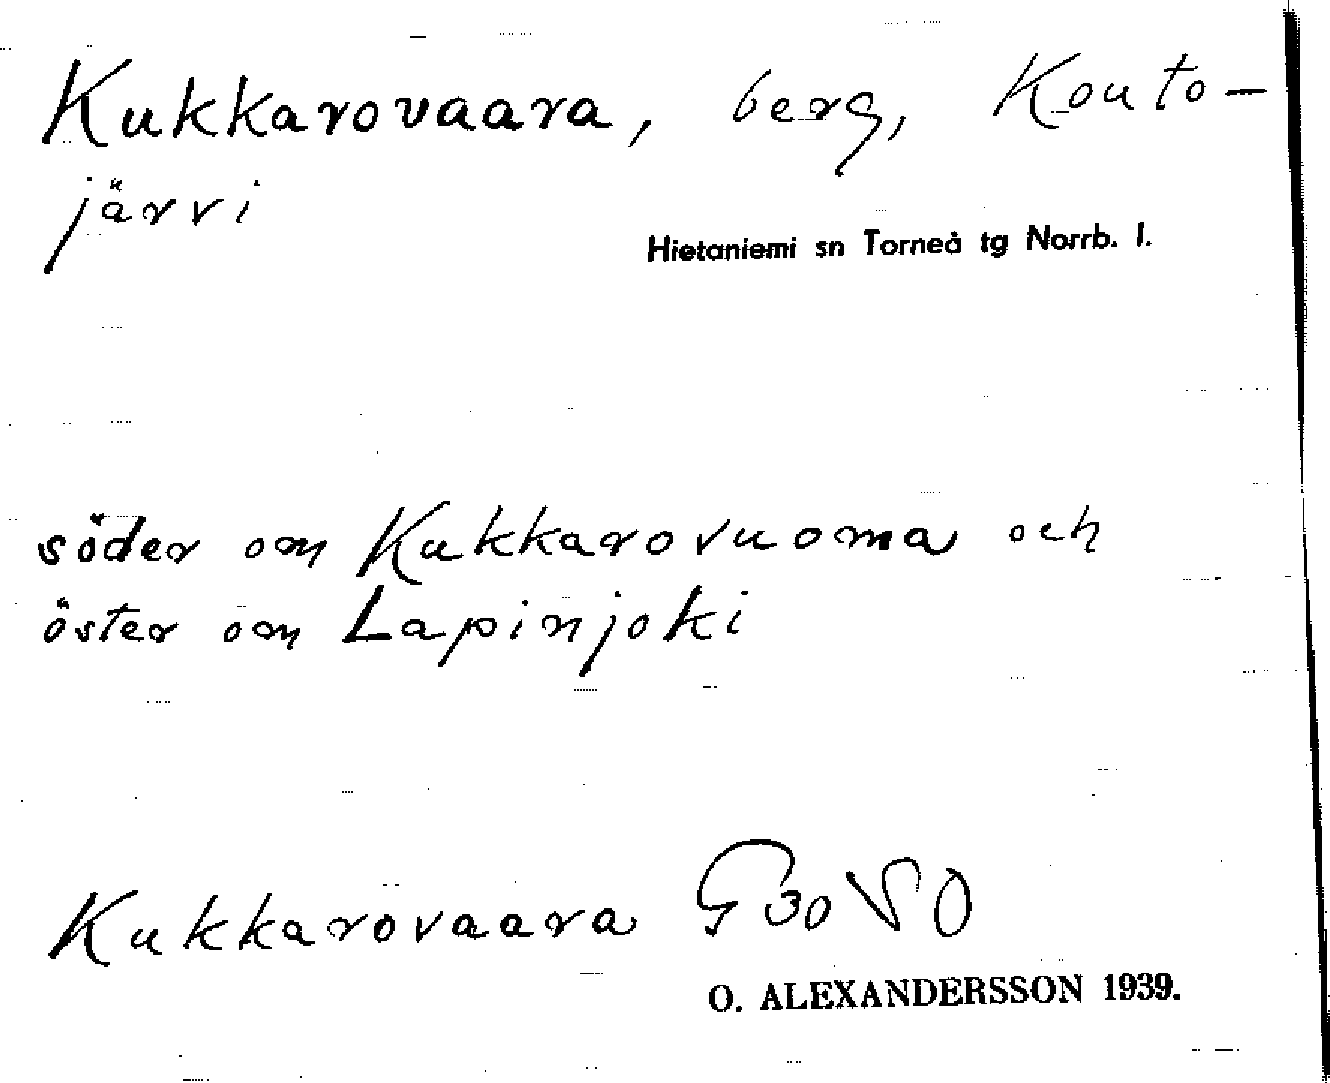 Kukkarovaara, berg, Kouto-
järvi
Hietaniemi sn Torneå tg Norrb. l.
söder om Kukkarovuoma och
öster om Lapinjoki
Kukkarovaara G 30 VSO
O. ALEXANDERSSON 1939.